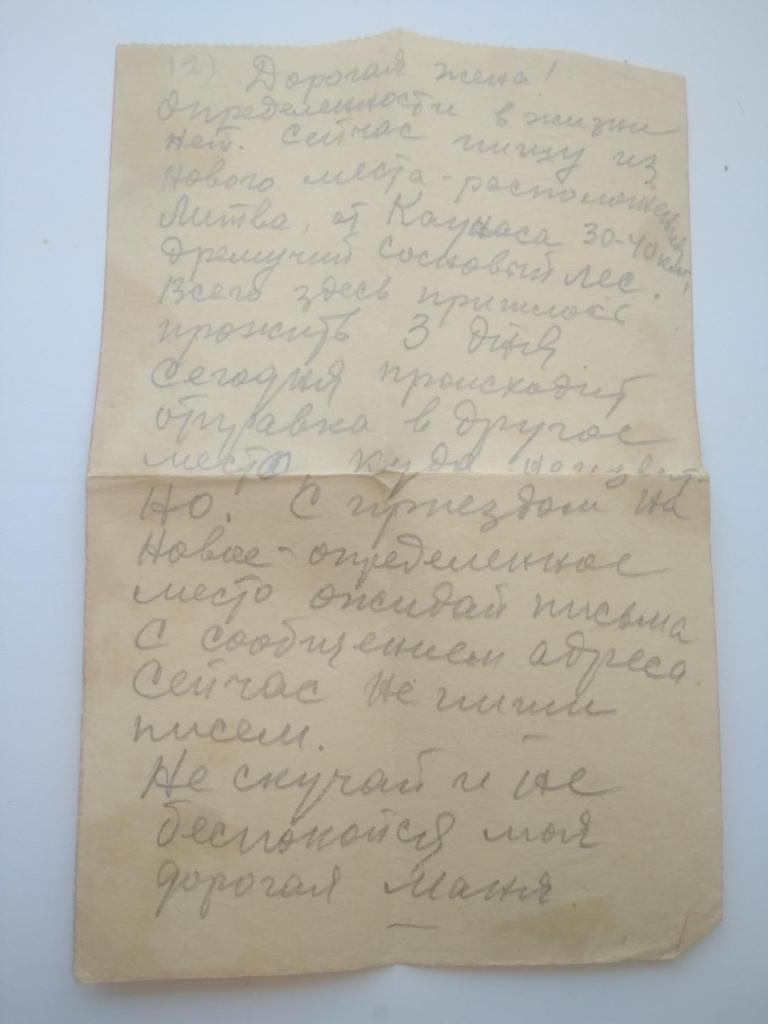 12) Дорогая жена!
Определенности в жизни
нет. Сейчас пишу из
нового места-расположения
Литва, от Каунаса 30-40 км,
дремучий сосновый лес.
Всего здесь пришлось
прожить 3 дня
Сегодня происходит
отправка в другое
место, куда неизвест-
но. С приездом на
новое-определенное
место ожидай письма
с сообщением адреса.
Сейчас не пиши
писем.
Не скучай и не
беспокойся моя
дорогая Маня.